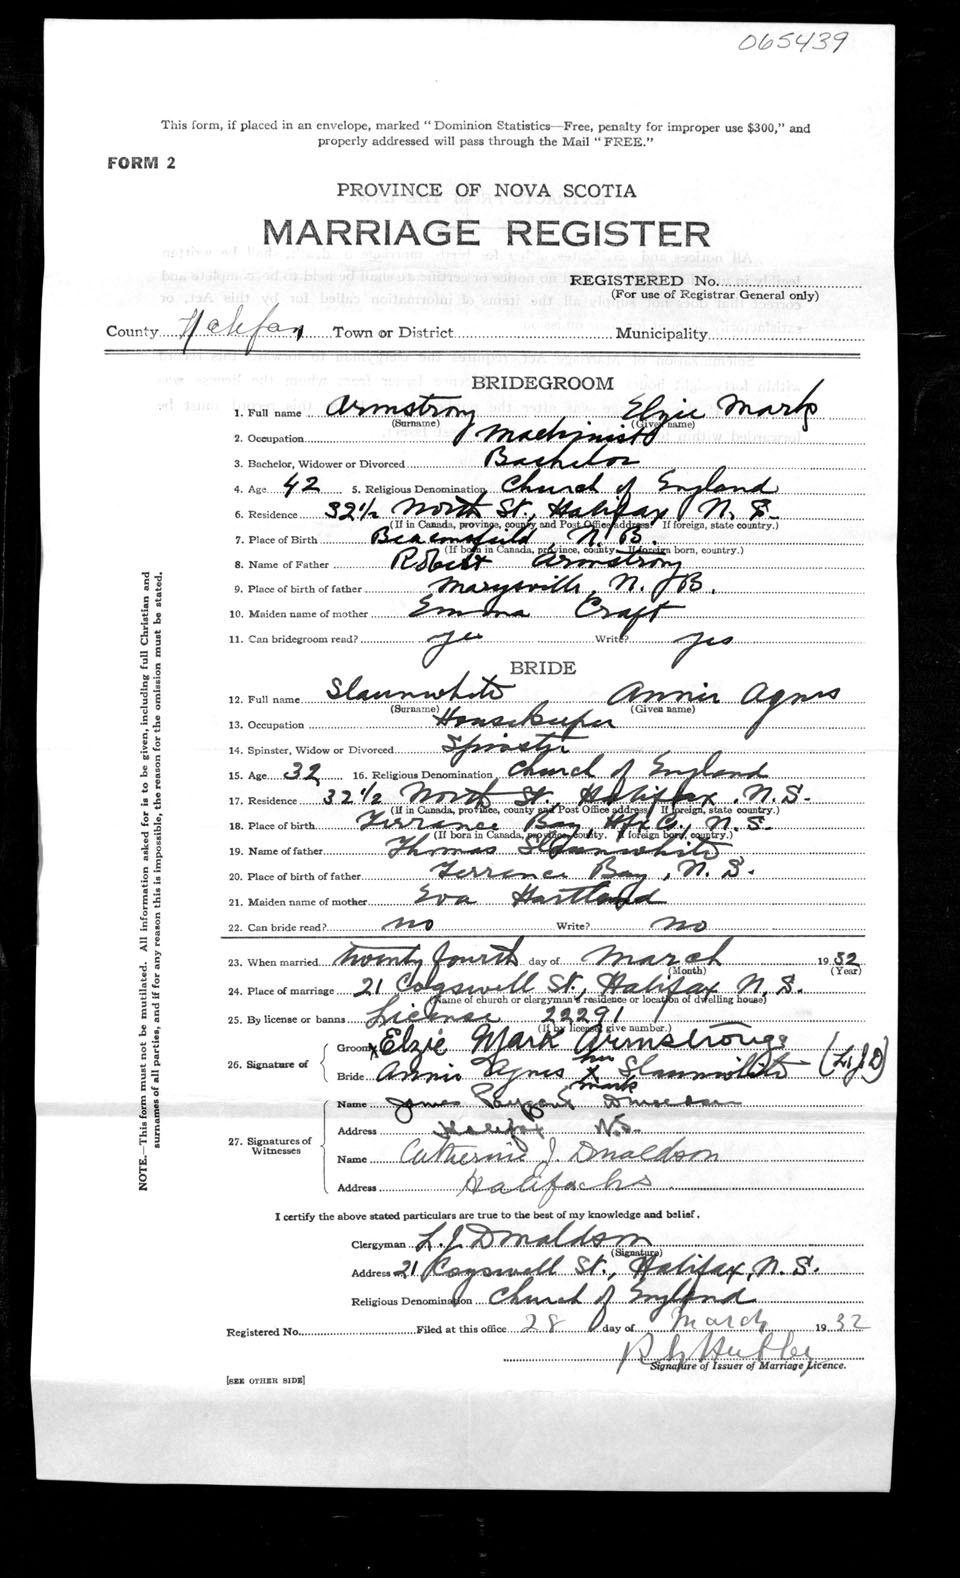 065439
This form, if placed in an envelope, marked "Dominion Statistics—Free, penalty for improper use $300," and
properly addressed will pass through the Mail "FREE."
FORM 2
PROVINCE OF NOVA SCOTIA
MARRIAGE REGISTER
REGISTERED No.
(For use of Registrar General only)
County Halifax Town or District Municipality
BRIDEGROOM
1. Full name Armstrong Elzie Mark
(Surname) (Given name)
2. Occupation Machinist
3. Bachelor, Widower or Divorced Bachelor
4. Age 42 5. Religious Denomination Church of England
6. Residence 32 1/2 North St., Halifax N. S.
(If in Canada, province, county and Post Office address. If foreign, state country.)
7. Place of Birth Beaconsfield, N. B.
(If born in Canada, province, county. If foreign born, country.)
8. Name of Father Robert Armstrong
9. Place of birth of father Marysville, N. B.
10. Maiden name of mother Emma Craft
11. Can bridegroom read? yes Write? yes
BRIDE
12. Full name Slaunwhite Annie Agnes
(Surname) (Given name)
13. Occupation Housekeeper
14. Spinster, Widow or Divorced Spinster
15. Age 32 16. Religious Denomination Church of England
17. Residence 32 1/2 North St., Halifax, N. S.
(If in Canada, province, county and Post Office address. If foreign, state country.)
18. Place of birth Terrance Bay, Hfx Co., N. S.
(If born in Canada, province, county. If foreign born, country.)
19. Name of father Thomas Slaunwhite
20. Place of birth of father Terrence Bay, N. S.
21. Maiden name of mother Eva Hartland
22. Can bride read? no Write? no
23. When married twenty fourth day of March 1932
(Month) (Year)
24. Place of marriage 21 Cogswell St., Halifax N. S.
(Name of church or clergyman's residence or location of dwelling house)
25. By license or banns License 22291
(If by license, give number.)
26. Signature of
Groom X Elzie Mark Armstrong
Bride Annie Agnes her X mark Slaunwhite (L.J.D)
27. Signatures of Witnesses
Name James
Address Halifax N.S.
Name Catherine J. Donaldson
Address Halifax N.S.
I certify the above stated particulars are true to the best of my knowledge and belief.
Clergyman L. J. Donaldson
(Signature)
Address 21 Cogswell St., Halifax, N. S.
Religious Denomination Church of England
Registered No. Filed at this office 28 day of March 1932
Hubley
Signature of Issuer of Marriage Licence.
[SEE OTHER SIDE]
NOTE.—This form must not be mutilated. All information asked for is to be given, including full Christian and
surnames of all parties, and if for any reason this is impossible, the reason for the omission must be stated.